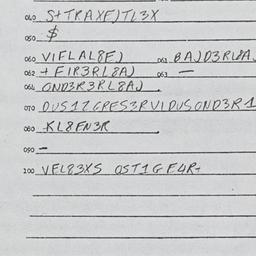 040 S+TRAXFJTL3X
050 $
060 VIFLAL8EJ 061 BAJD3RL8A
062 +FIR3RL8AJ 063 —
064 OND3R3RL8AJ
070 DUS1ZCRES3RVIDUSOND3R1
080 KL8FN3R
090 -
100 VEL83XS OST1GF4R+